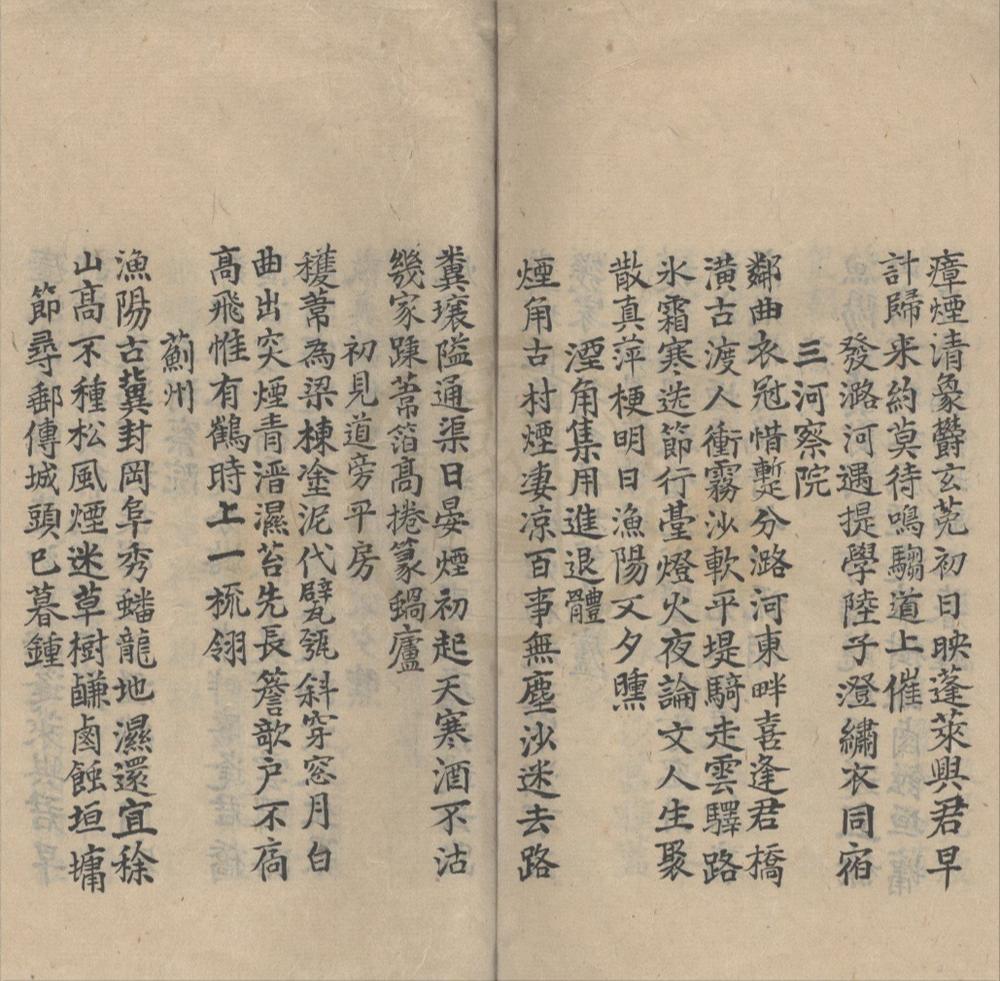 瘴煙清象欝玄菟初日映蓬萊興君早
計歸来約莫待鳴騶道上催
發潞河遇提學陸子澄繡衣同宿
三河察院
鄰曲衣冠惜蹔分潞河東畔喜逢君橋
潢古渡人衝霧沙軟平堤騎走雲驛路
氷霜寒送節行臺燈火夜論文人生聚
散真萍梗明日漁陽又夕曛
湮角集用進退體
煙角古村煙凄凉百事無塵沙迷去路
糞壤隘通渠日晏煙初起天寒酒不沽
幾家踈葦箔髙捲篆蝸廬
初見道旁平房
穫葦為梁棟塗泥代甓瓴斜穿窓月白
曲出突煙青溍濕苔先長簷欹户不扃
髙飛惟有鶴時上一梳翎
薊州
漁陽古冀封岡阜秀蟠龍地濕還宜稌
山髙不種松風煙迷草樹鹻鹵蝕垣墉
節尋郵傳城頭已暮鍾